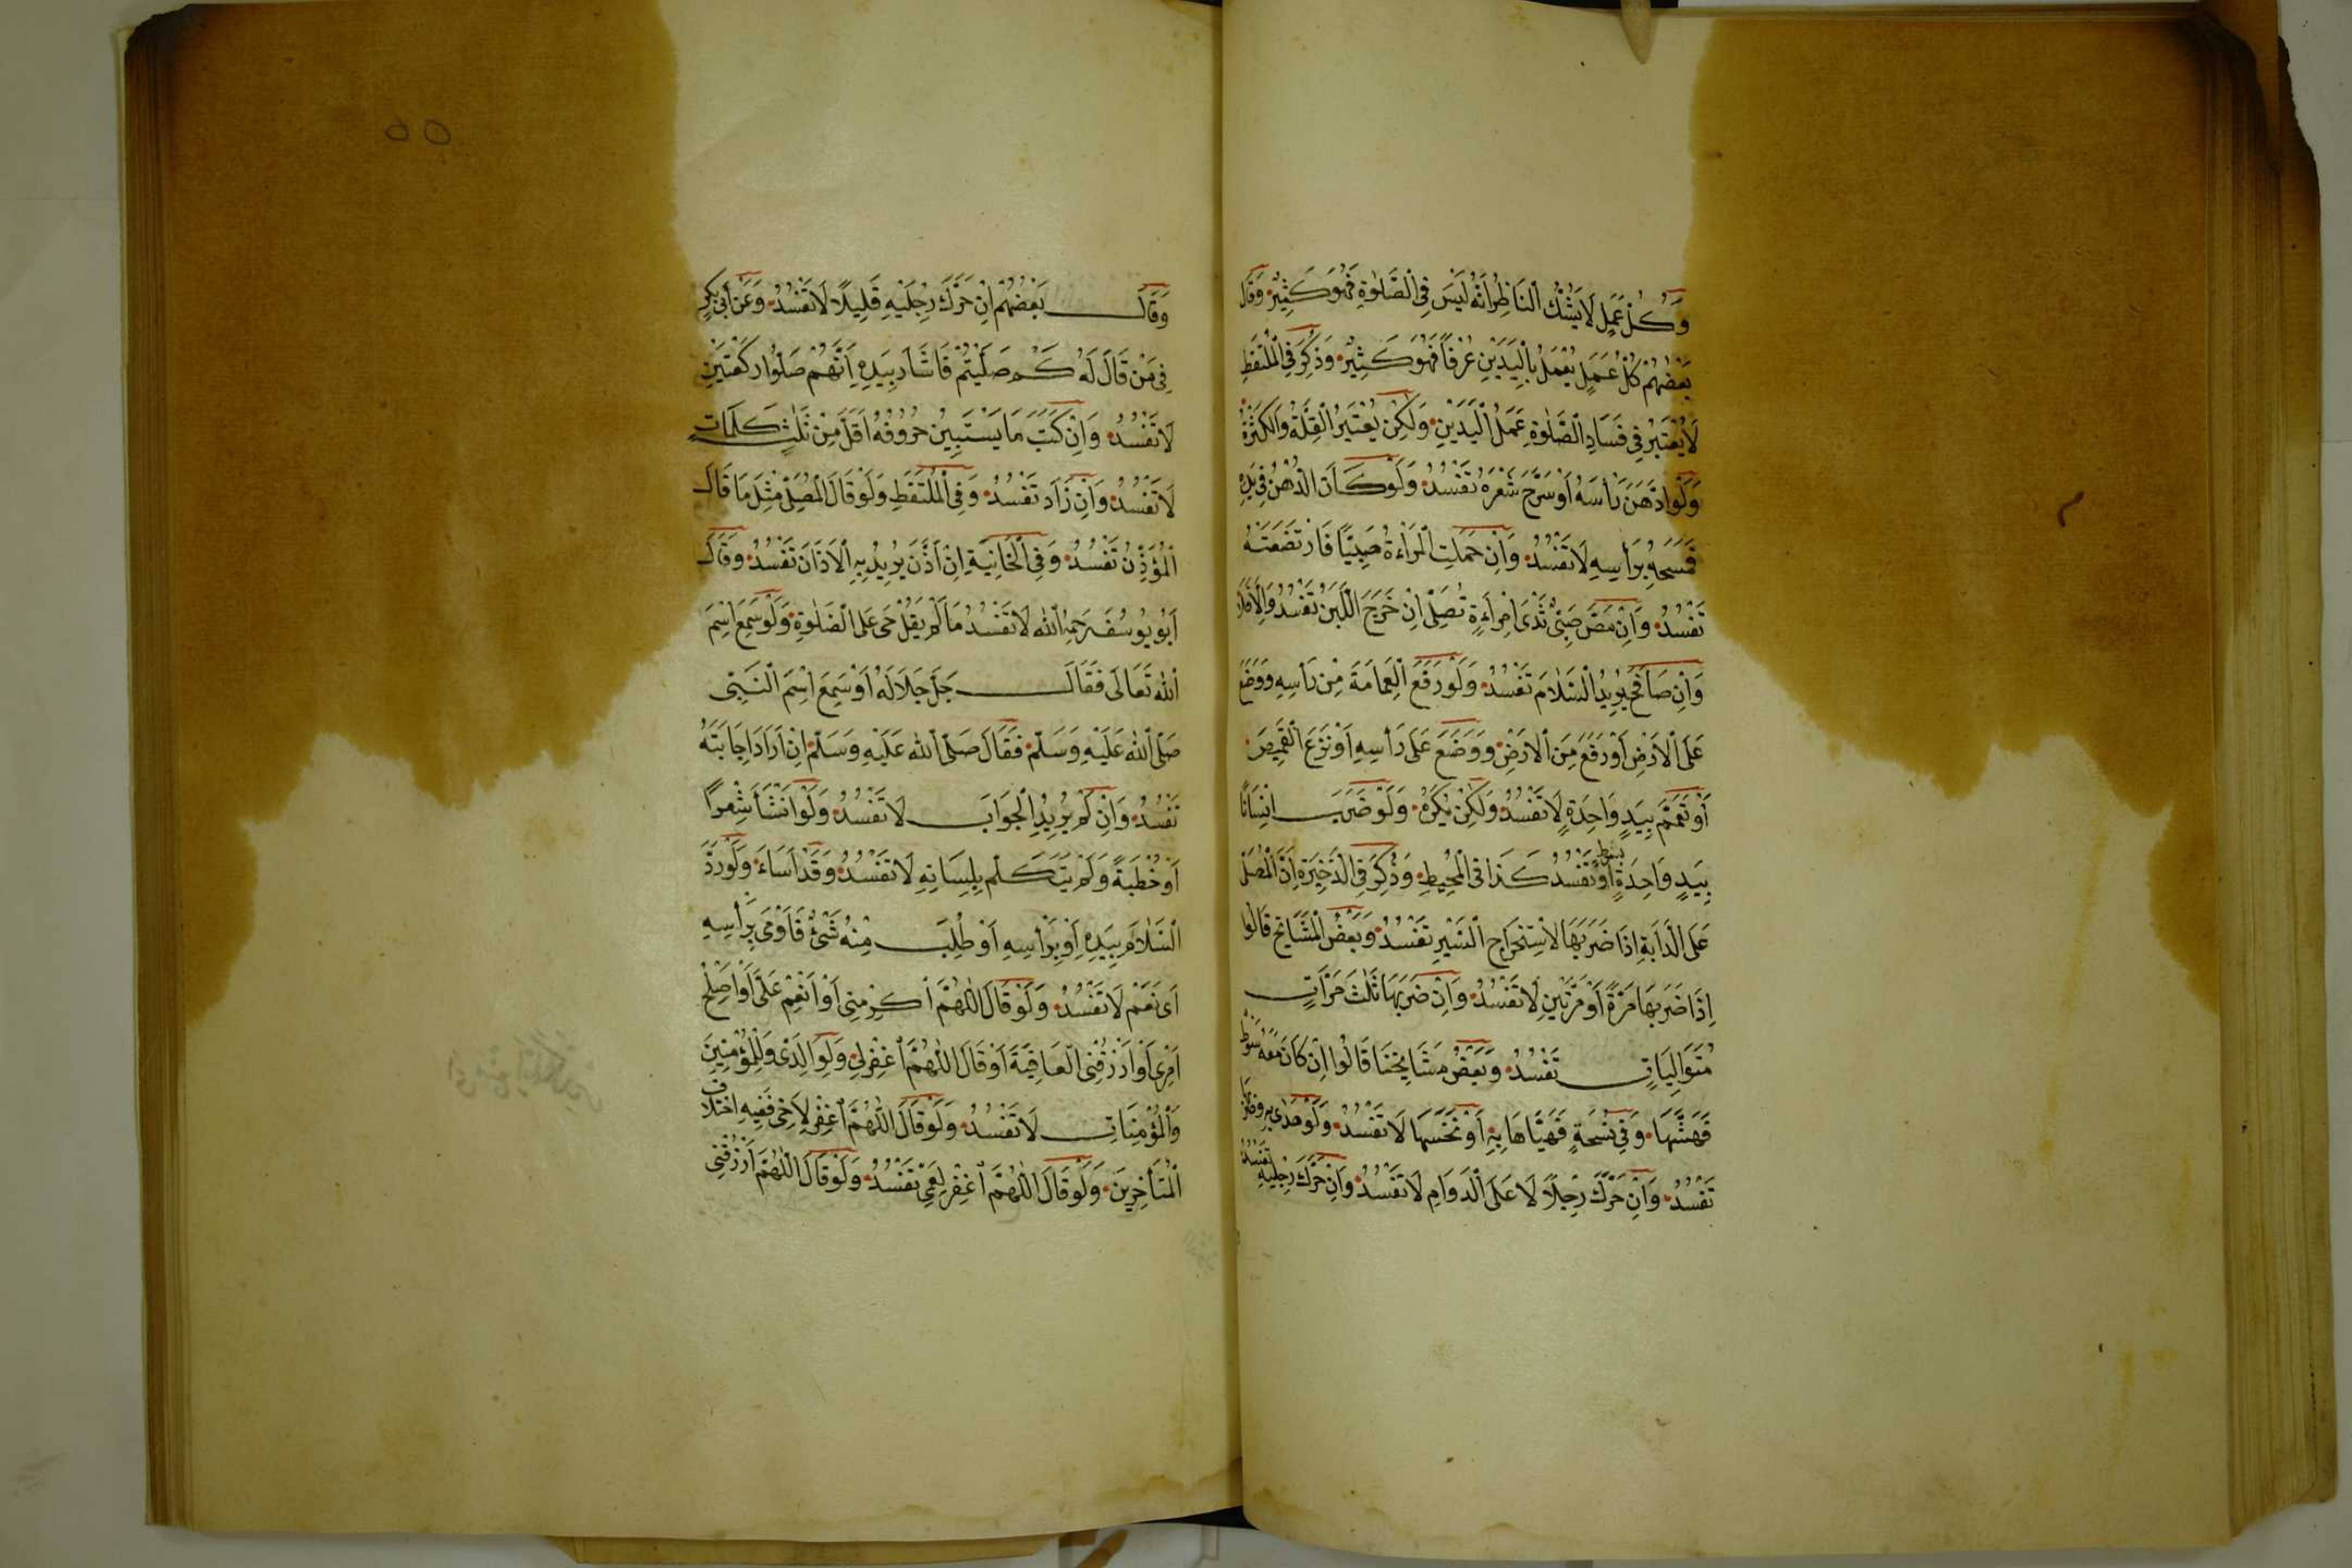 وَكُلُّ عَمَلٍ لَا يَشُكُّ النَّاظِرُ اَنَّهُ لَيْسَ فِى الصَّلٰوةِ فَهُوَ كَثِيْرٌ وَقَالَ
بَعْضُهُمْ كُلُّ عَمَلٍ يُعْمَلُ بِالْيَدَيْنِ عُرْفًا فَهُوَ كَثِيْرٌ وَذُكِرَ فِى الْمُلْتَقَطِ
لَا يُعْتَبَرُ فِى فَسَادِ الصَّلٰوةِ عَمَلُ الْيَدَيْنِ وَلٰكِنْ يُعْتَبَرُ الْقِلَّةُ وَالْكَثْرَةُ
وَلَوِ ادَّهَنَ رَأْسَهُ اَوْ سَرَّحَ شَعْرَهُ تَفْسُدُ وَلَوْ كَانَ الدُّهْنُ فِى يَدِهِ
فَمَسَحَهُ بِرَأْسِهِ لَا تَفْسُدُ وَاِنْ حَمَلَتِ الْمَرْاَةُ صَبِيًّا فَارْتَضَعَتْهُ
تَفْسُدُ وَاِنْ مَصَّ صَبِىٌّ ثَدْىَ امْرَاَةٍ تُصَلِّى اِنْ خَرَجَ اللَّبَنُ تَفْسُدُ وَاِلَّا فَلَا
وَاِنْ صَافَحَ يُرِيْدُ السَّلَامَ تَفْسُدُ وَلَوْ رَفَعَ الْعِمَامَةَ مِنْ رَأْسِهِ وَوَضَعَ
عَلَى الْاَرْضِ اَوْ رَفَعَ مِنَ الْاَرْضِ وَوَضَعَ عَلَى رَأْسِهِ اَوْ نَزَعَ الْقَمِيْصَ
اَوْ تَعَمَّمَ بِيَدٍ وَاحِدَةٍ لَا تَفْسُدُ وَلٰكِنْ يُكْرَهُ وَلَوْ ضَرَبَ اِنْسَانًا
بِيَدٍ وَاحِدَةٍ اَوْ بِسَوْطٍ تَفْسُدُ كَذَا فِى الْمُحِيْطِ وَذُكِرَ فِى الذَّخِيْرَةِ اَنَّ الْمُصَلِّى
عَلَى الدَّابَّةِ اِذَا ضَرَبَهَا لِاسْتِخْرَاجِ السَّيْرِ تَفْسُدُ وَبَعْضُ الْمَشَايِخِ قَالُوا
اِذَا ضَرَبَهَا مَرَّةً اَوْ مَرَّتَيْنِ لَا تَفْسُدُ وَاِنْ ضَرَبَهَا ثَلٰثَ مَرَّاتٍ
مُتَوَالِيَاتٍ تَفْسُدُ وَبَعْضُ مَشَايِخِنَا قَالُوا اِنْ كَانَ مَعَهُ سَوْطٌ
فَهَشَّهَا وَفِى نُسْخَةٍ فَهَيَّاَهَا بِهِ اَوْ نَخَسَهَا لَا تَفْسُدُ وَلَوْ هَدٰى بِهِ وَضَرَبَ
تَفْسُدُ وَاِنْ حَرَّكَ رِجْلًا لَا عَلَى الدَّوَامِ لَا تَفْسُدُ وَاِنْ حَرَّكَ رِجْلَيْهِ تَفْسُدُ
٥٥
وَقَالَ بَعْضُهُمْ اِنْ حَرَّكَ رِجْلَيْهِ قَلِيْلًا لَا تَفْسُدُ وَعَنْ اَبِى بَكْرٍ
فِى مَنْ قَالَ لَهُ كَمْ صَلَّيْتُمْ فَاَشَارَ بِيَدِهِ اَنَّهُمْ صَلَّوْا رَكْعَتَيْنِ
لَا تَفْسُدُ وَاِنْ كَتَبَ مَا يَسْتَبِيْنُ حُرُوْفُهُ اَقَلَّ مِنْ ثَلٰثِ كَلِمَاتٍ
لَا تَفْسُدُ وَاِنْ زَادَ تَفْسُدُ وَفِى الْمُلْتَقَطِ وَلَوْ قَالَ الْمُصَلِّى مِثْلَ مَا قَالَ
الْمُؤَذِّنُ تَفْسُدُ وَفِى الْخَانِيَةِ اِنْ اَذَّنَ يُرِيْدُ بِهِ الْاَذَانَ تَفْسُدُ وَقَالَ
اَبُو يُوسُفَ رَحِمَهُ اللّٰهُ لَا تَفْسُدُ مَا لَمْ يَقُلْ حَىَّ عَلَى الصَّلٰوةِ وَلَوْ سَمِعَ اسْمَ
اللّٰهِ تَعَالَى فَقَالَ جَلَّ جَلَالَهُ اَوْ سَمِعَ اسْمَ النَّبِىِّ
صَلَّى اللّٰهُ عَلَيْهِ وَسَلَّمَ فَقَالَ صَلَّى اللّٰهُ عَلَيْهِ وَسَلَّمَ اِنْ اَرَادَ اِجَابَتَهُ
تَفْسُدُ وَاِنْ لَمْ يُرِيْدِ الْجَوَابَ لَا تَفْسُدُ وَلَوْ اَنْشَاَ شِعْرًا
اَوْ خُطْبَةً وَلَمْ يَتَكَلَّمْ بِلِسَانِهِ لَا تَفْسُدُ وَقَدْ اَسَاءَ وَلَوْ رَدَّ
السَّلَامَ بِيَدِهِ اَوْ بِرَأْسِهِ اَوْ طُلِبَ مِنْهُ شَىْءٌ فَاَوْمَى بِرَأْسِهِ
اَىْ نَعَمْ لَا تَفْسُدُ وَلَوْ قَالَ اللّٰهُمَّ اَكْرِمْنِى اَوْ اَنْعِمْ عَلَىَّ اَوْ اَصْلِحْ
اَمْرِى اَوْ اُرْزُقْنِى الْعَافِيَةَ اَوْ قَالَ اللّٰهُمَّ اغْفِرْلِى وَلِوَالِدَىَّ وَلِلْمُؤْمِنِيْنَ
وَالْمُؤْمِنَاتِ لَا تَفْسُدُ وَلَوْ قَالَ اللّٰهُمَّ اغْفِرْ لِاَخِى فَفِيْهِ اخْتِلَافُ
الْمُتَأَخِّرِيْنَ وَلَوْ قَالَ اللّٰهُمَّ اغْفِرْ لِعَمِّى تَفْسُدُ وَلَوْ قَالَ اللّٰهُمَّ ارْزُقْنِى